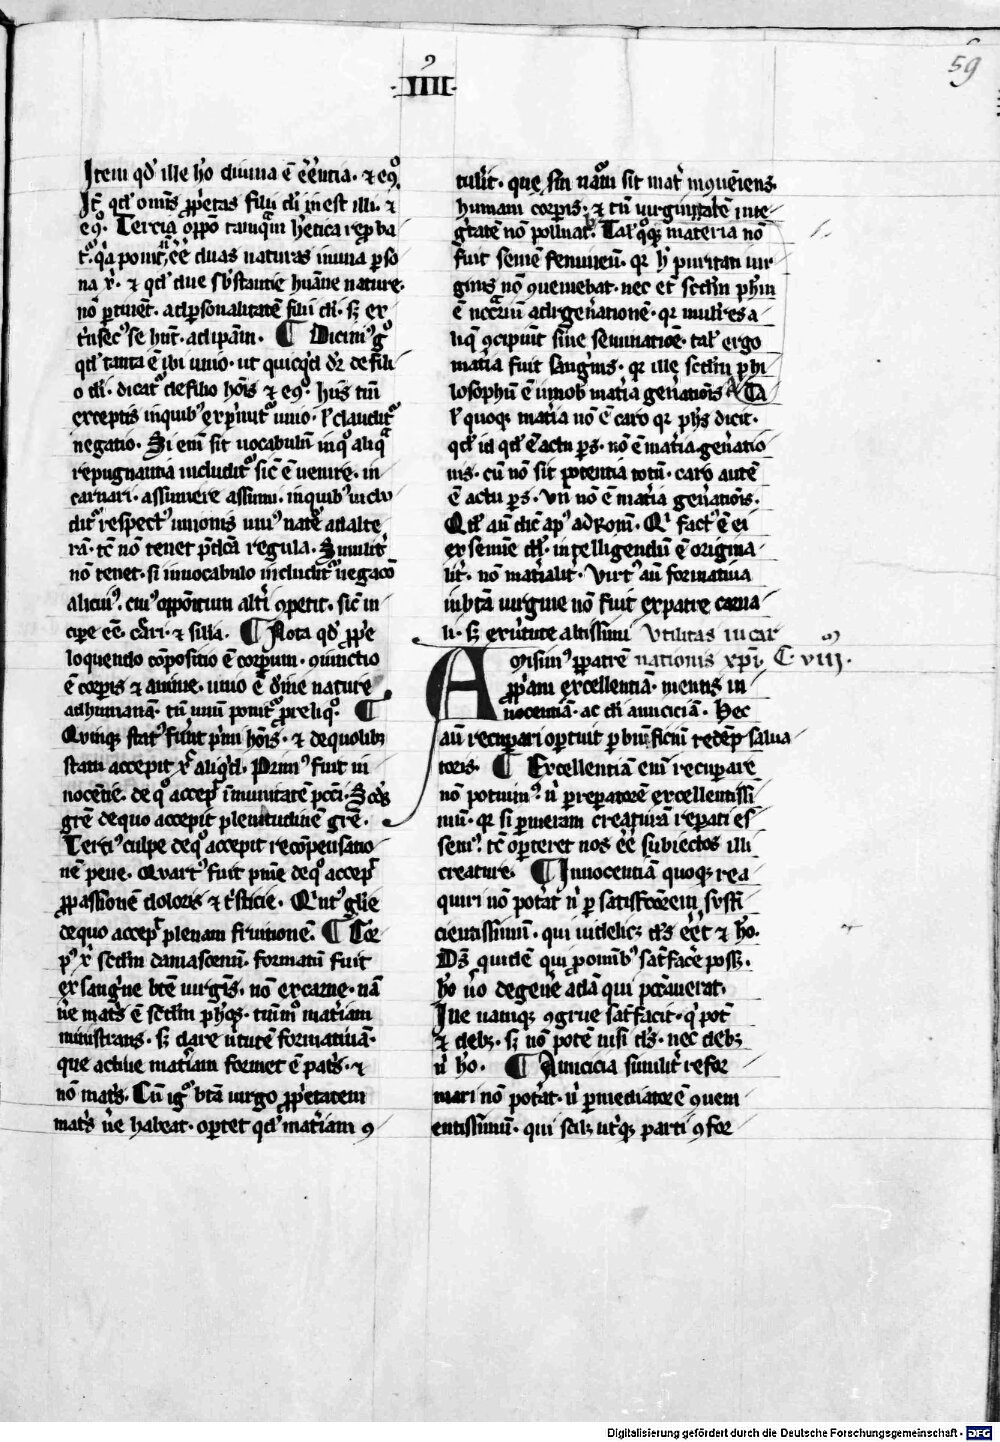 59
·IIII·
Item qd' ille ho diuina ē eēntia · ⁊ eꝯ.
It qd' omīs ꝓp̄etas filii dī inest illi · ⁊
eꝯ. Tercia oppō tanqm̄ heretica rep̄ba
t' q̄a ponit eē duas naturas in una ꝑso
na x̄ · ⁊ qd' due sb̄stantie hūane nature
nō ꝑtinēt · ad ꝑsonalitatē filii dī · sꝫ ex
t'nsecꝰ se hn̄t · ad ip̄am · ¶ Dicimꝰ gͦ
qd' tanta ē ibi unio · ut quicqd dr̄ de fili
o dī · dicat' de filio hoīs ⁊ eꝯ · hiis tn̄
exceptis in quibꝰ exp̄mit' unio · ul' claudit'
negatio · Si eni sit uocabulū in qͦ aliq̄
repugnantia includit' sic ē uenire · in
carnari · assumere assumi · in quibꝰ inclu
dit' respectꝰ unionis uniꝰ nat'e ad alte
rā · tc̄ nō tenet p̄dc̄a regula · Similit'
nō tenet · si in uocabulo includit' negacō
alicuiꝰ · cuiꝰ oppositum alt'i ꝯpetit · sic in
cipe eē · c̄ari · ⁊ silia · ¶ Nota qd' ꝓp̄e
loquendo cōpositio ē corꝑum · ꝯiunctio
ē corꝑis ⁊ anime · unio ē diuine nature
ad humanā · tn̄ unū ponit' pro reliqͦ · ¶
Quinqꝫ statꝰ fūnt p̄mi hoīs · ⁊ de quolibꝫ
statu accepit x̄ aliqd · Primꝰ fuit in
nocētie · de qͦ accep̄ īmunitatē pcc̄i · Scd's
grē de quo accepit plenitudinē grē ·
Terciꝰ culpe de qͦ accepit recōpensatio
nē pene · Quartꝰ fuit pēne de qͦ accep̄
ꝓp̄assionē doloris ⁊ t'sticie · Quitꝰ glie
de quo accep̄ plenam fruitionē · ¶ Cor
pꝰ x̄ scdm damascenū · formatū fuit
ex sangne btē uirgīs · nō ex carne · nā
uē mat's ē scdm phos · tn̄mͦ mat'iam
ministrans · sꝫ dare uirtutē formatiuā ·
que actiue mat'iam format ē pat's · ⁊
nō mat's · Cū igͦ btā uirgo ꝓp̄etatem
mat's ue habeat · oꝑtet qd' mat'iam ꝯ
tulerit · que sm̄ nat'm sit mat' ꝯueniens
humani corꝑis · ⁊ tn̄ uirginitatē inte
g'tatē nō polluat · Tal' qͦqꝫ materia nō
fuit semē femineū · qr h' puritati uir
ginis nō ꝯueniebat · nec et scdm phm
ē nccariū ad genationē · qr mulieres a
liq̄ ꝯcipiūt sine seminatiōe · tal' ergo
mat'ia fuit sanguis · qr ille scdm phi
losophū ē in mob' mat'ia genationis · Ta
l' quoqꝫ mat'ia nō ē caro qr phs dicit ·
qd' id qd' ē actu ꝑs · nō ē mat'ia genatio
nis · cū nō sit potentia totū · caro autē
ē actu ꝑs · un̄ nō ē mat'ia genationis ·
Qd' au dic̄ apꝰ ad Rom · Qi factꝰ ē ei
ex semine dd · intelligendū ē origina
lit' · nō mat'ialit' · virtꝰ au formatiua
in btā uirgine nō fuit ex patre carna
li · sꝫ ex uirtute altissimi Vtilitas incar
nationis xpi · C · viij ·
Amisimꝰ ꝑ patrē
ꝓp̄am excellentiā · mentis in
nocentiā · ac dī amiciciā · Hec
au recuꝑari oꝑtuit ꝑ bn̄ficiū redēp saluа
toris · ¶ Excellentiā eni recuperare
nō potuimꝰ n' ꝑ reparatorē excellentissi
mū · qr si ꝑ meram creaturā reparati es
semꝰ · tc̄ oꝑteret nos eē subiectos illi
creature · ¶ Innocentiā quoqꝫ rea
quiri nō pot'at n' ꝑ satisfactōrem suffi
cientissimū · qui uidelicꝫ ds eēt ⁊ ho ·
Ds quidē qui ꝓ omībꝰ sat'facere possꝫ ·
ho uo de genē adā qui pccauerat ·
Ille namqꝫ ꝯgrue sat'facit · q' pot
⁊ debꝫ · sꝫ nō potē nisi ds · nec debꝫ
n' ho · ¶ Amicicia similit' refor
mari nō pot'at · n' ꝑ mediatorē ꝯueni
entissimū · qui scilꝫ ut'qꝫ parti ꝯfor
Digitalisierung gefördert durch die Deutsche Forschungsgemeinschaft - DFG